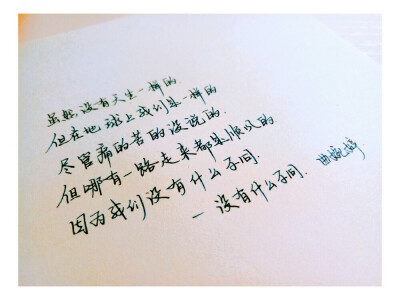 虽然没有天生一样的
但在地球上我们是一样的
尽管痛的苦的没说的.
但哪有一路走来都是顺风的.
因为我们没有什么不同.
—没有什么不同. 曲婉婷